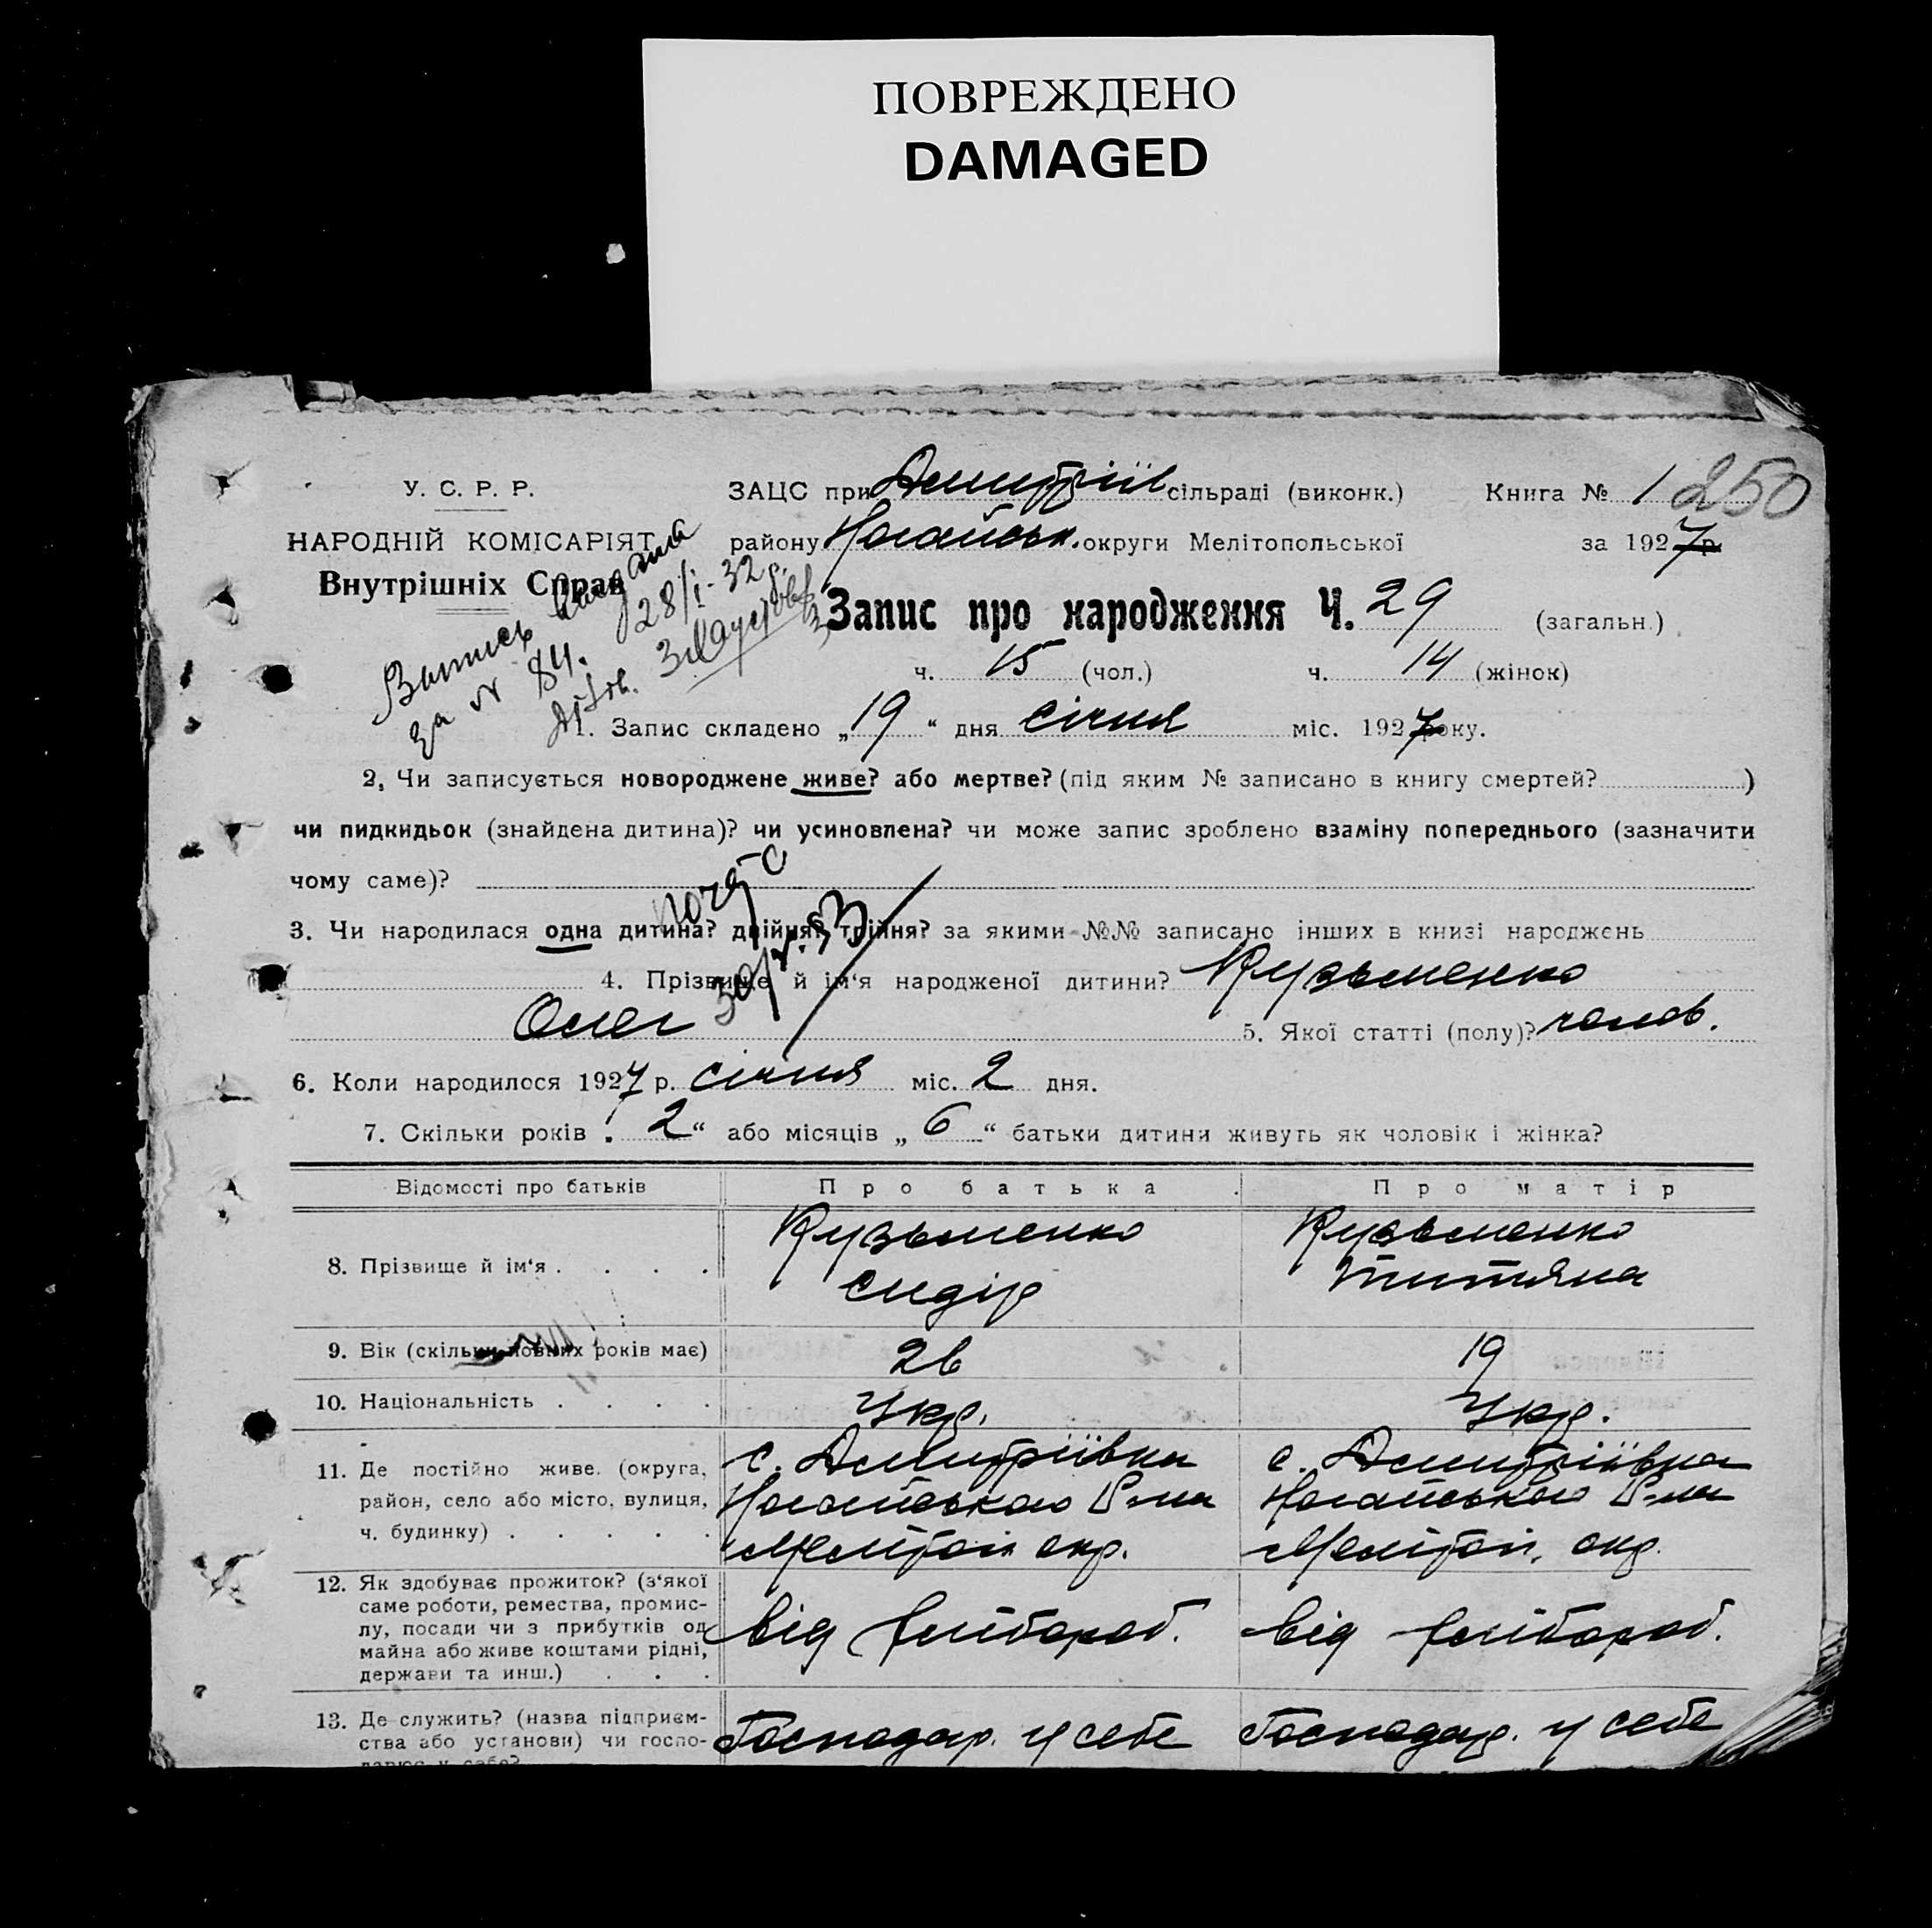 ПОВРЕЖДЕНО
DAMAGED
У. С. Р. Р.
НАРОДНІЙ КОМІСАРІЯТ
Внутрішніх Справ
ЗАЦС при Дмитріїв сільраді (виконк.) Книга № 1 250
району Ногайськ. округи Мелітопольської за 1927 р.
Выпись выдана
за № 84. 28/I-32 р.
Запис про народження Ч. 29 (загальн.)
ч. 15 (чол.) ч. 14 (жінок)
1. Запис складено „19“ дня січня міс. 1927 року.
2, Чи записується новороджене живе? або мертве? (під яким № записано в книгу смертей? )
чи пидкидьок (знайдена дитина)? чи усиновлена? чи може запис зроблено взаміну попереднього (зазначити
чому саме)?
3. Чи народилася одна дитина? двійня? трійня? за якими №№ записано інших в книзі народжень
4. Прізвище й ім‘я народженої дитини? Кузьменко
Олег 5. Якої статті (полу)? чолов.
6. Коли народилося 1927 р. січня міс. 2 дня.
7. Скільки років „2“ або місяців „6“ батьки дитини живуть як чоловік і жінка?
Відомості про батьків Про батька Про матір
8. Прізвище й ім‘я . . . . Кузьменко Кузьменко
Сидір Титяна
9. Вік (скільки повних років має) 26 19
10. Національність . . . . Укр. Укр.
11. Де постійно живе. (округа, с. Дмитріївка с. Дмитріївка
район, село або місто, вулиця, Ногайського Р-на Ногайського Р-на
ч. будинку) . . . . . Мелітоп. окр. Мелітоп. окр.
12. Як здобуває прожиток? (з‘якої
саме роботи, ремества, промис-
лу, посади чи з прибутків од від хлібороб. від хлібороб.
майна або живе коштами рідні,
держави та инш.) . . .
13. Де служить? (назва підприєм- Господар. у себе Господар. у себе
ства або установи) чи госпо-
дарює у себе?